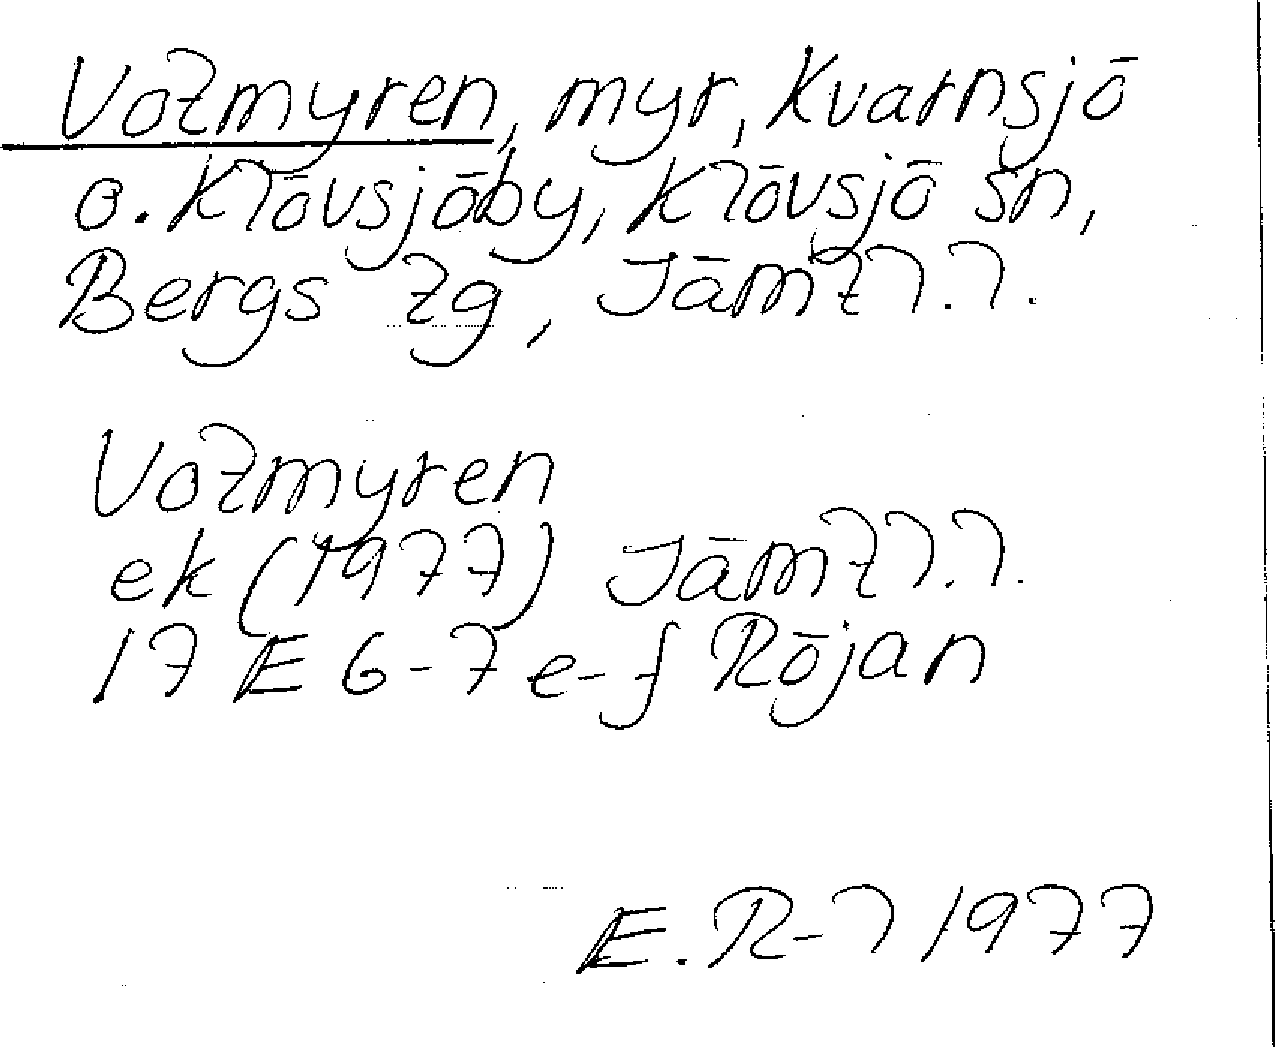 Votmyren, myr, Kvarnsjö
o. Klövsjöby, Klövsjö sn,
Bergs tg, Jämtl.l.
Votmyren
ek (1977) Jämtl.l.
17 E 6-7 e-f Röjan
E. R-l 1977